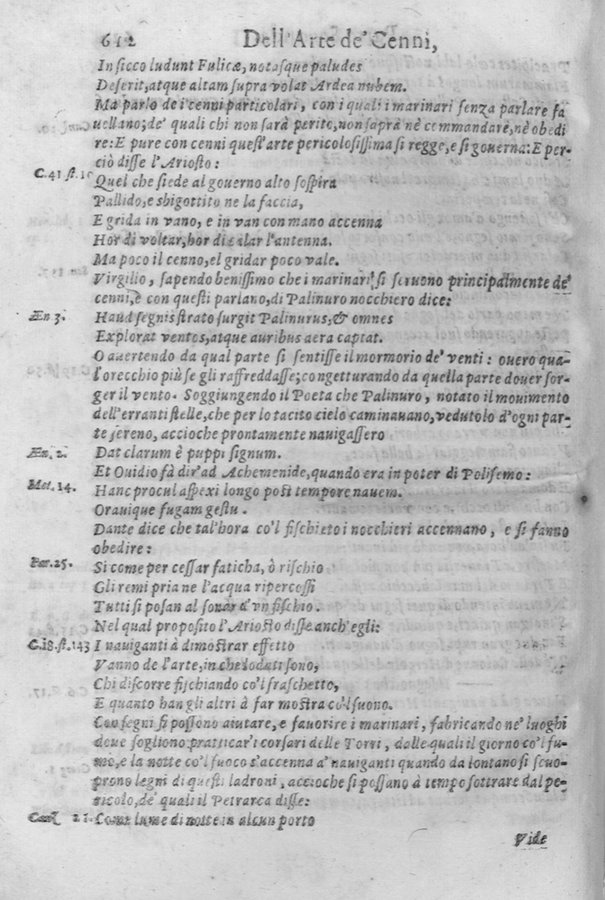 612 Dell'Arte de' Cenni,
In sicco ludunt Fulicæ, notasque paludes
Deserit, atque altam supra volat Ardea nubem.
Ma parlo de i cenni particolari, con i quali i marinari senza parlare fa
uellano; de' quali chi non sarà perito, non saprà nè commandare, nè obedi
re: E pure con cenni quest'arte pericolosissima si regge, e si gouerna: E per-
ciò disse l'Ariosto:
C. 41 st. 10 Quel che siede al gouerno alto sospira
Pallido, e sbigottito ne la faccia,
E grida in vano, e in van con mano accenna
Hor di voltar, hor di calar l'antenna.
Ma poco il cenno, el gridar poco vale.
Virgilio, sapendo benissimo che i marinari si seruono principalmente de'
cenni, e con questi parlano, di Palinuro nocchiero dice:
Æn 3. Haud segnis strato surgit Palinurus, & omnes
Explorat ventos, atque auribus aera captat.
O auertendo da qual parte si sentisse il mormorio de' venti: ouero qua-
l'orecchio più se gli raffreddasse; congetturando da quella parte douer sor-
ger il vento. Soggiungendo il Poeta che Palinuro, notato il mouimento
dell'erranti stelle, che per lo tacito cielo caminauano, vedutolo d'ogni par-
te sereno, accioche prontamente nauigassero
Æn. 2. Dat clarum è puppi signum.
Et Ouidio fà dir' ad Achemenide, quando era in poter di Polifemo:
Met. 14. Hanc procul aspexi longo post tempore nauem.
Orauique fugam gestu.
Dante dice che tal'hora co'l fischieto i nocchieri accennano, e si fanno
obedire:
Par. 25. Si come per cessar faticha, ò rischio
Gli remi pria ne l'acqua ripercossi
Tutti si posan al sonar d'vn fischio.
Nel qual proposito l'Ariosto disse anch'egli:
C. 18. st. 143 I nauiganti à dimostrar effetto
Vanno de l'arte, in che lodati sono,
Chi discorre fischiando co'l fraschetto,
E quanto han gli altri à far mostra co'l suono.
Con segni si possono aiutare, e fauorire i marinari, fabricando ne' luoghi
doue sogliono pratticar' i corsari delle Torri, dalle quali il giorno co'l fu-
mo, e la notte co'l fuoco s'accenna a' nauiganti quando da lontano si scuo-
prono legni di questi ladroni, accioche si possano à tempo sottrare dal pe-
ricolo, de' quali il Petrarca disse:
Canz 21. Come lume di notte in alcun porto
Vide